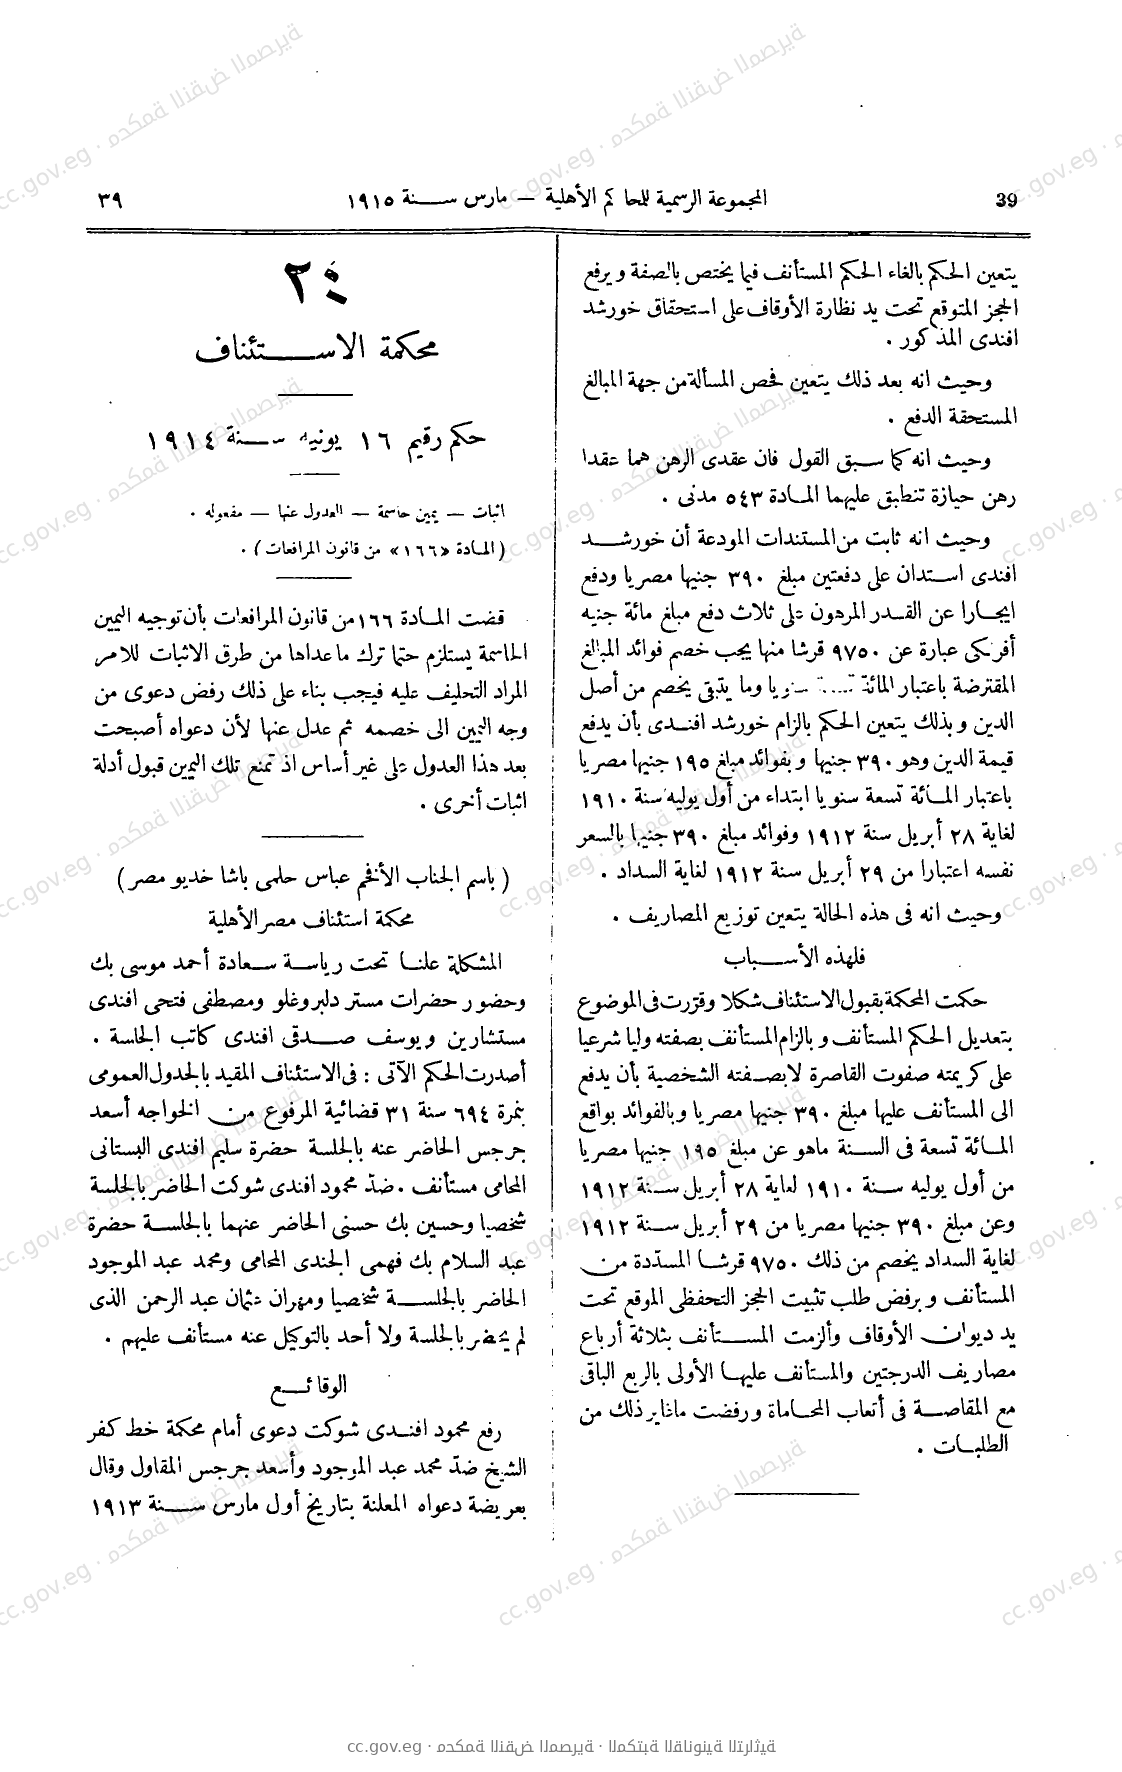 39
المجموعة الرسمية للمحاكم الأهلية — مارس سنة ١٩١٥
٣٩
يتعين الحكم بالغاء الحكم المستأنف فيما يختص بالصفة ويرفع
الحجز المتوقع تحت يد نظارة الأوقاف على استحقاق خورشد
افندى المذكور .
وحيث انه بعد ذلك يتعين فحص المسألة من جهة المبالغ
المستحقة الدفع .
وحيث انه كما سبق القول فان عقدى الرهن هما عقدا
رهن حيازة تنطبق عليهما المادة ٥٤٣ مدنى .
وحيث انه ثابت من المستندات المودعة أن خورشد
افندى استدان على دفعتين مبلغ ٣٩٠ جنيها مصريا ودفع
ايجارا عن القدر المرهون على ثلاث دفع مبلغ مائة جنيه
أفرنكى عبارة عن ٩٧٥٠ قرشا منها يجب خصم فوائد المبالغ
المقترضة باعتبار المائة سنويا وما يتبقى يخصم من أصل
الدين وبذلك يتعين الحكم بالزام خورشد افندى بأن يدفع
قيمة الدين وهو ٣٩٠ جنيها وبفوائد مبلغ ١٩٥ جنيها مصريا
باعتبار المائة تسعة سنويا ابتداء من أول يوليه سنة ١٩١٠
لغاية ٢٨ أبريل سنة ١٩١٢ وفوائد مبلغ ٣٩٠ جنيها بالسعر
نفسه اعتبارا من ٢٩ أبريل سنة ١٩١٢ لغاية السداد .
وحيث انه فى هذه الحالة يتعين توزيع المصاريف .
فلهذه الأسباب
حكمت المحكمة بقبول الاستئناف شكلا وقررت فى الموضوع
بتعديل الحكم المستأنف وبالزام المستأنف بصفته وليا شرعيا
على كريمته صفوت القاصرة لا بصفته الشخصية بأن يدفع
الى المستأنف عليها مبلغ ٣٩٠ جنيها مصريا وبالفوائد بواقع
المائة تسعة فى السنة ماهو عن مبلغ ١٩٥ جنيها مصريا
من أول يوليه سنة ١٩١٠ لغاية ٢٨ أبريل سنة ١٩١٢
وعن مبلغ ٣٩٠ جنيها مصريا من ٢٩ أبريل سنة ١٩١٢
لغاية السداد يخصم من ذلك ٩٧٥٠ قرشا المسدّدة من
المستأنف وبرفض طلب تثبيت الحجز التحفظى الموقع تحت
يد ديوان الأوقاف وألزمت المستأنف بثلاثة أرباع
مصاريف الدرجتين والمستأنف عليها الأولى بالربع الباقى
مع المقاصة فى أتعاب المحاماة ورفضت ماغاير ذلك من
الطلبات .
٢٤
محكمة الاستئناف
حكم رقيم ١٦ يونيه سنة ١٩١٤
اثبات — يمين حاسمة — العدول عنها — مفعوله .
( المادة «١٦٦» من قانون المرافعات ) .
قضت المادة ١٦٦ من قانون المرافعات بأن توجيه اليمين
الحاسمة يستلزم حتما ترك ماعداها من طرق الاثبات للامر
المراد التحليف عليه فيجب بناء على ذلك رفض دعوى من
وجه اليمين الى خصمه ثم عدل عنها لأن دعواه أصبحت
بعد هذا العدول على غير أساس اذ تمنع تلك اليمين قبول أدلة
اثبات أخرى .
( باسم الجناب الأفخم عباس حلمى باشا خديو مصر )
محكمة استئناف مصر الأهلية
المشكلة علنا تحت رياسة سعادة أحمد موسى بك
وحضور حضرات مستر دلبروغلو ومصطفى فتحى افندى
مستشارين ويوسف صدقى افندى كاتب الجلسة .
أصدرت الحكم الآتى : فى الاستئناف المقيد بالجدول العمومى
بنمرة ٦٩٤ سنة ٣١ قضائية المرفوع من الخواجه أسعد
جرجس الحاضر عنه بالجلسة حضرة سليم افندى البستانى
المحامى مستأنف . ضدّ محمود افندى شوكت الحاضر بالجلسة
شخصيا وحسين بك حسنى الحاضر عنهما بالجلسة حضرة
عبد السلام بك فهمى الجندى المحامى ومحمد عبد الموجود
الحاضر بالجلسة شخصيا ومهران عثمان عبد الرحمن الذى
لم يحضر بالجلسة ولا أحد بالتوكيل عنه مستأنف عليهم .
الوقائع
رفع محمود افندى شوكت دعوى أمام محكمة خط كفر
الشيخ ضدّ محمد عبد الموجود وأسعد جرجس المقاول وقال
بعريضة دعواه المعلنة بتاريخ أول مارس سنة ١٩١٣
cc.gov.eg · محكمة النقض المصرية · المكتبة القانونية التراثية